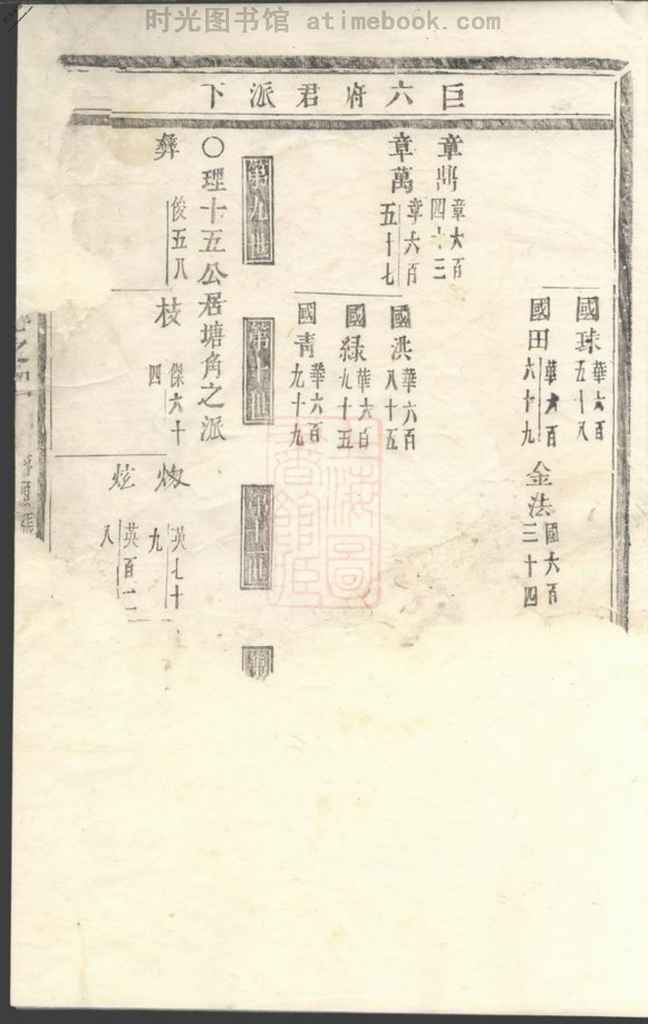 时光图书馆 atimebook.com
巨六府君派下
國球 華六百五十八
國田 華六百六十九
金法 國六百三十四
章鼎 章六百四十三
章萬 章六百五十七
國洪 華六百八十五
國緑 華六百九十五
國青 華六百九十九
第九世
第十世
第十一世
第
〇理十五公居塘角之派
彝 俊五八
枝 傑六十四
英七十九
炫 英百二八